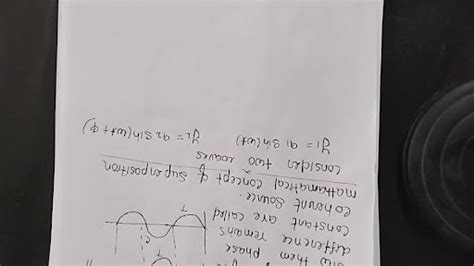 b/w them phase
difference remains
constant are called
coherent source.
mathematical concept of superposition
consider two waves
y₁ = a₁ sin(wt)   y₂ = a₂ sin(wt + φ)